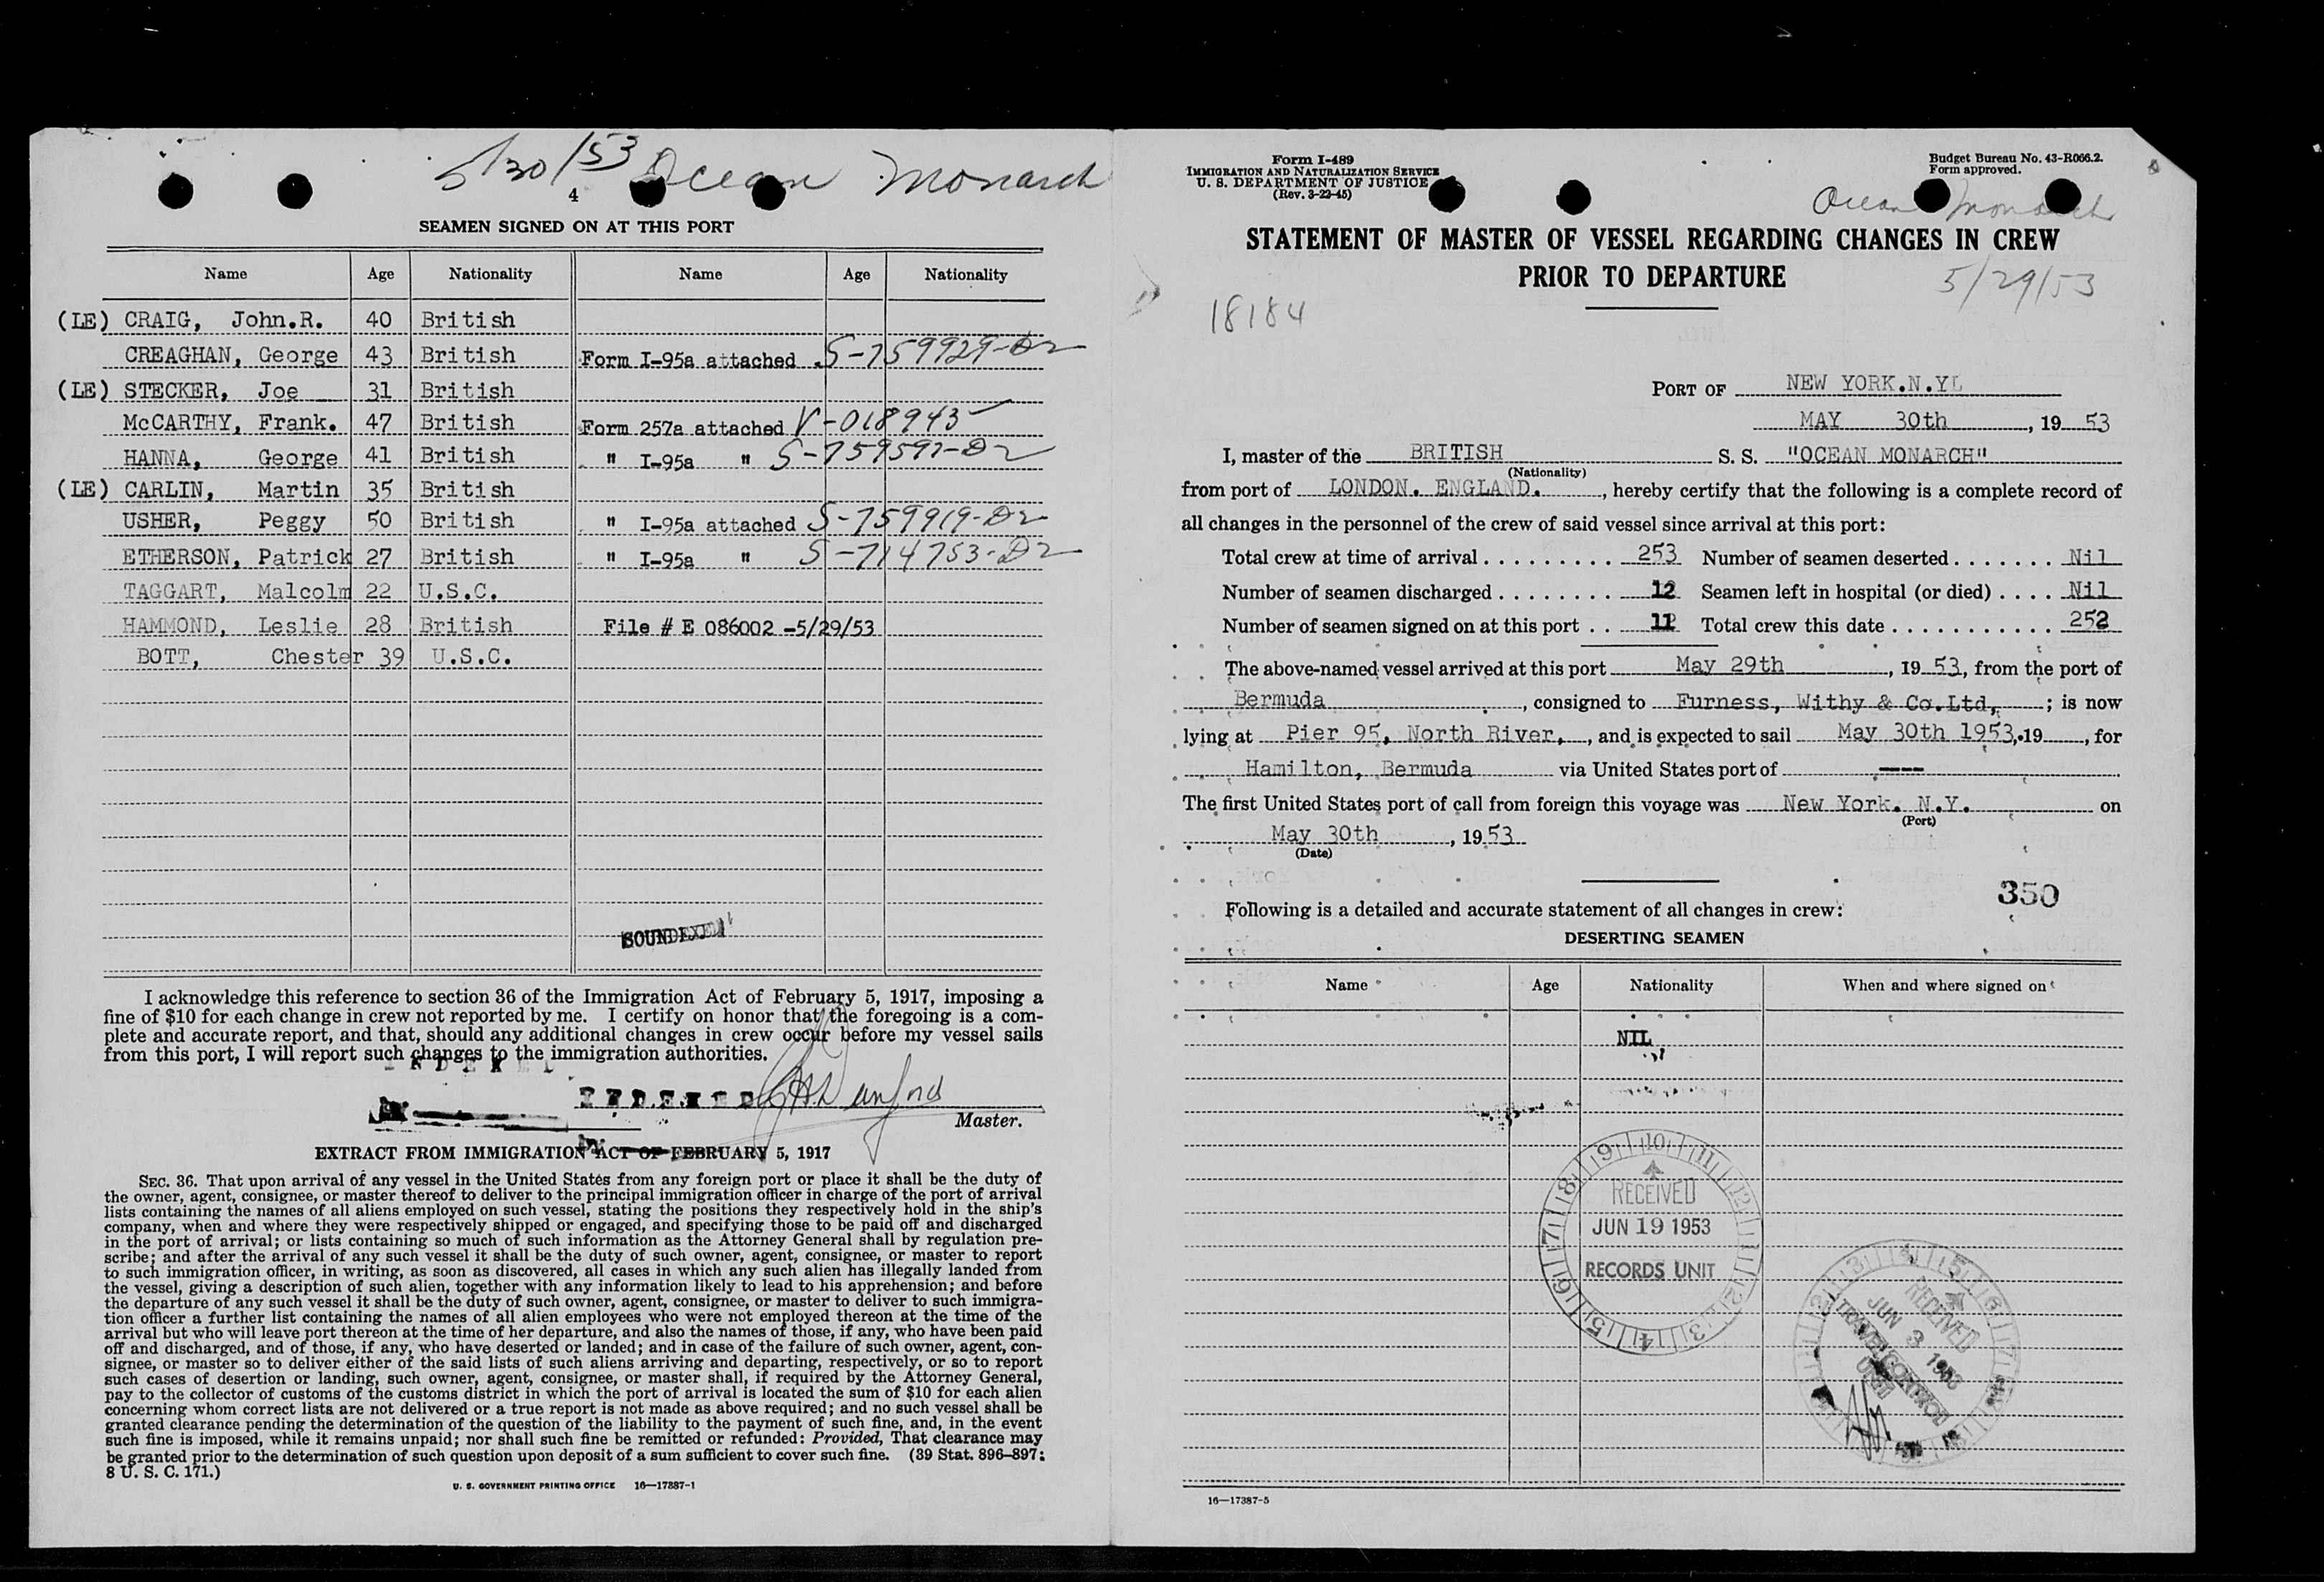 5/30/53 Ocean Monarch
4
SEAMEN SIGNED ON AT THIS PORT
Name Age Nationality Name Age Nationality
(LE) CRAIG, John.R. 40 British
CREAGHAN, George 43 British Form I-95a attached S-759929-D2
(LE) STECKER, Joe 31 British
McCARTHY, Frank. 47 British Form 257a attached V-018943
HANNA, George 41 British " I-95a " S-759597-D2
(LE) CARLIN, Martin 35 British
USHER, Peggy 50 British " I-95a attached S-759919-D2
ETHERSON, Patrick 27 British " I-95a " S-714753-D2
TAGGART, Malcolm 22 U.S.C.
HAMMOND, Leslie 28 British File # E 086002 -5/29/53
BOTT, Chester 39 U.S.C.
SOUNDEXED
I acknowledge this reference to section 36 of the Immigration Act of February 5, 1917, imposing a
fine of $10 for each change in crew not reported by me. I certify on honor that the foregoing is a com-
plete and accurate report, and that, should any additional changes in crew occur before my vessel sails
from this port, I will report such changes to the immigration authorities.
Master.
EXTRACT FROM IMMIGRATION ACT OF FEBRUARY 5, 1917
SEC. 36. That upon arrival of any vessel in the United States from any foreign port or place it shall be the duty of
the owner, agent, consignee, or master thereof to deliver to the principal immigration officer in charge of the port of arrival
lists containing the names of all aliens employed on such vessel, stating the positions they respectively hold in the ship's
company, when and where they were respectively shipped or engaged, and specifying those to be paid off and discharged
in the port of arrival; or lists containing so much of such information as the Attorney General shall by regulation pre-
scribe; and after the arrival of any such vessel it shall be the duty of such owner, agent, consignee, or master to report
to such immigration officer, in writing, as soon as discovered, all cases in which any such alien has illegally landed from
the vessel, giving a description of such alien, together with any information likely to lead to his apprehension; and before
the departure of any such vessel it shall be the duty of such owner, agent, consignee, or master to deliver to such immigra-
tion officer a further list containing the names of all alien employees who were not employed thereon at the time of the
arrival but who will leave port thereon at the time of her departure, and also the names of those, if any, who have been paid
off and discharged, and of those, if any, who have deserted or landed; and in case of the failure of such owner, agent, con-
signee, or master so to deliver either of the said lists of such aliens arriving and departing, respectively, or so to report
such cases of desertion or landing, such owner, agent, consignee, or master shall, if required by the Attorney General,
pay to the collector of customs of the customs district in which the port of arrival is located the sum of $10 for each alien
concerning whom correct lists are not delivered or a true report is not made as above required; and no such vessel shall be
granted clearance pending the determination of the question of the liability to the payment of such fine, and, in the event
such fine is imposed, while it remains unpaid; nor shall such fine be remitted or refunded: Provided, That clearance may
be granted prior to the determination of such question upon deposit of a sum sufficient to cover such fine. (39 Stat. 896–897;
8 U. S. C. 171.)
U. S. GOVERNMENT PRINTING OFFICE 16—17387-1
Form I-489
IMMIGRATION AND NATURALIZATION SERVICE
U. S. DEPARTMENT OF JUSTICE
(Rev. 3-22-45)
Budget Bureau No. 43-R066.2.
Form approved.
Ocean Monarch
STATEMENT OF MASTER OF VESSEL REGARDING CHANGES IN CREW
PRIOR TO DEPARTURE
5/29/53
18184
PORT OF NEW YORK.N.YL
MAY 30th, 19 53
I, master of the BRITISH S. S. "OCEAN MONARCH"
(Nationality)
from port of LONDON. ENGLAND., hereby certify that the following is a complete record of
all changes in the personnel of the crew of said vessel since arrival at this port:
Total crew at time of arrival 253 Number of seamen deserted Nil
Number of seamen discharged 12 Seamen left in hospital (or died) Nil
Number of seamen signed on at this port 11 Total crew this date 252
The above-named vessel arrived at this port May 29th, 19 53, from the port of
Bermuda, consigned to Furness, Withy & Co.Ltd,; is now
lying at Pier 95, North River., and is expected to sail May 30th 1953, 19, for
Hamilton, Bermuda via United States port of ----
The first United States port of call from foreign this voyage was New York. N.Y. on
(Port)
May 30th, 19 53
(Date)
350
Following is a detailed and accurate statement of all changes in crew:
DESERTING SEAMEN
Name Age Nationality When and where signed on
NIL
RECEIVED
JUN 19 1953
RECORDS UNIT
RECEIVED
JUN 3 1953
TRAVEL CONTROL
UNIT
16—17387-5